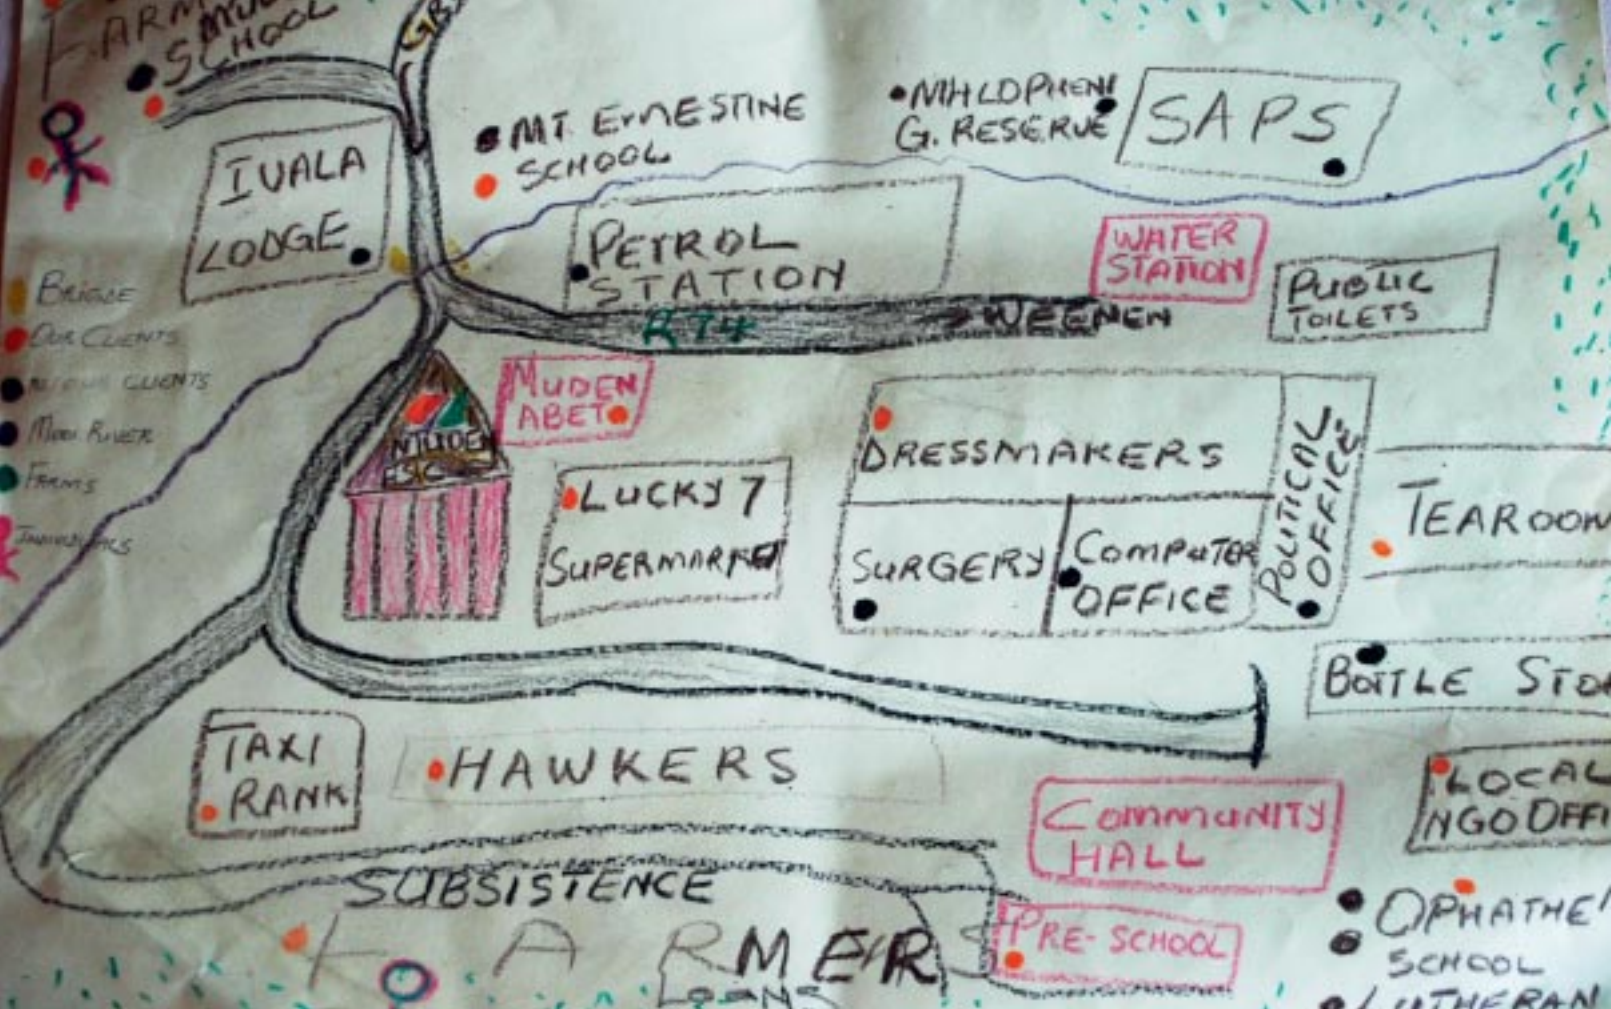 FARM
SCHOOL
MT. ERNESTINE
SCHOOL
MHLOPHENI
G. RESERVE
SAPS
IVALA
LODGE
PETROL
STATION
WATER
STATION
PUBLIC
TOILETS
R74
WEENEN
BRIGDE
OUR CLIENTS
CLIENTS
MOOI RIVER
FARMS
INDIVIDUALS
MUDEN
ABET
LUCKY 7
SUPERMARKET
DRESSMAKERS
SURGERY
COMPUTER
OFFICE
POLITICAL
OFFICE
TEAROOM
BOTTLE STO
TAXI
RANK
HAWKERS
COMMUNITY
HALL
LOCAL
NGO OFFI
SUBSISTENCE
FARMERS
LOANS
PRE-SCHOOL
OPHATHE
SCHOOL
LUTHERAN